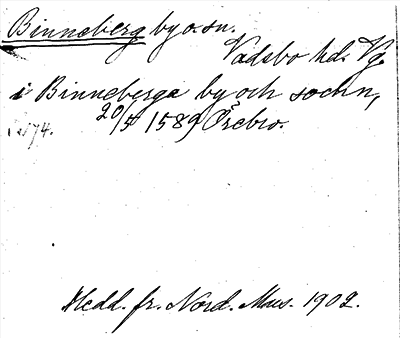 Binneberg by o. sn.
Vadsbo hd. Vg.
i Binneberga by och sochn,
20/5 1589 Örebro.
Medd. fr. Nord. Mus. 1902.